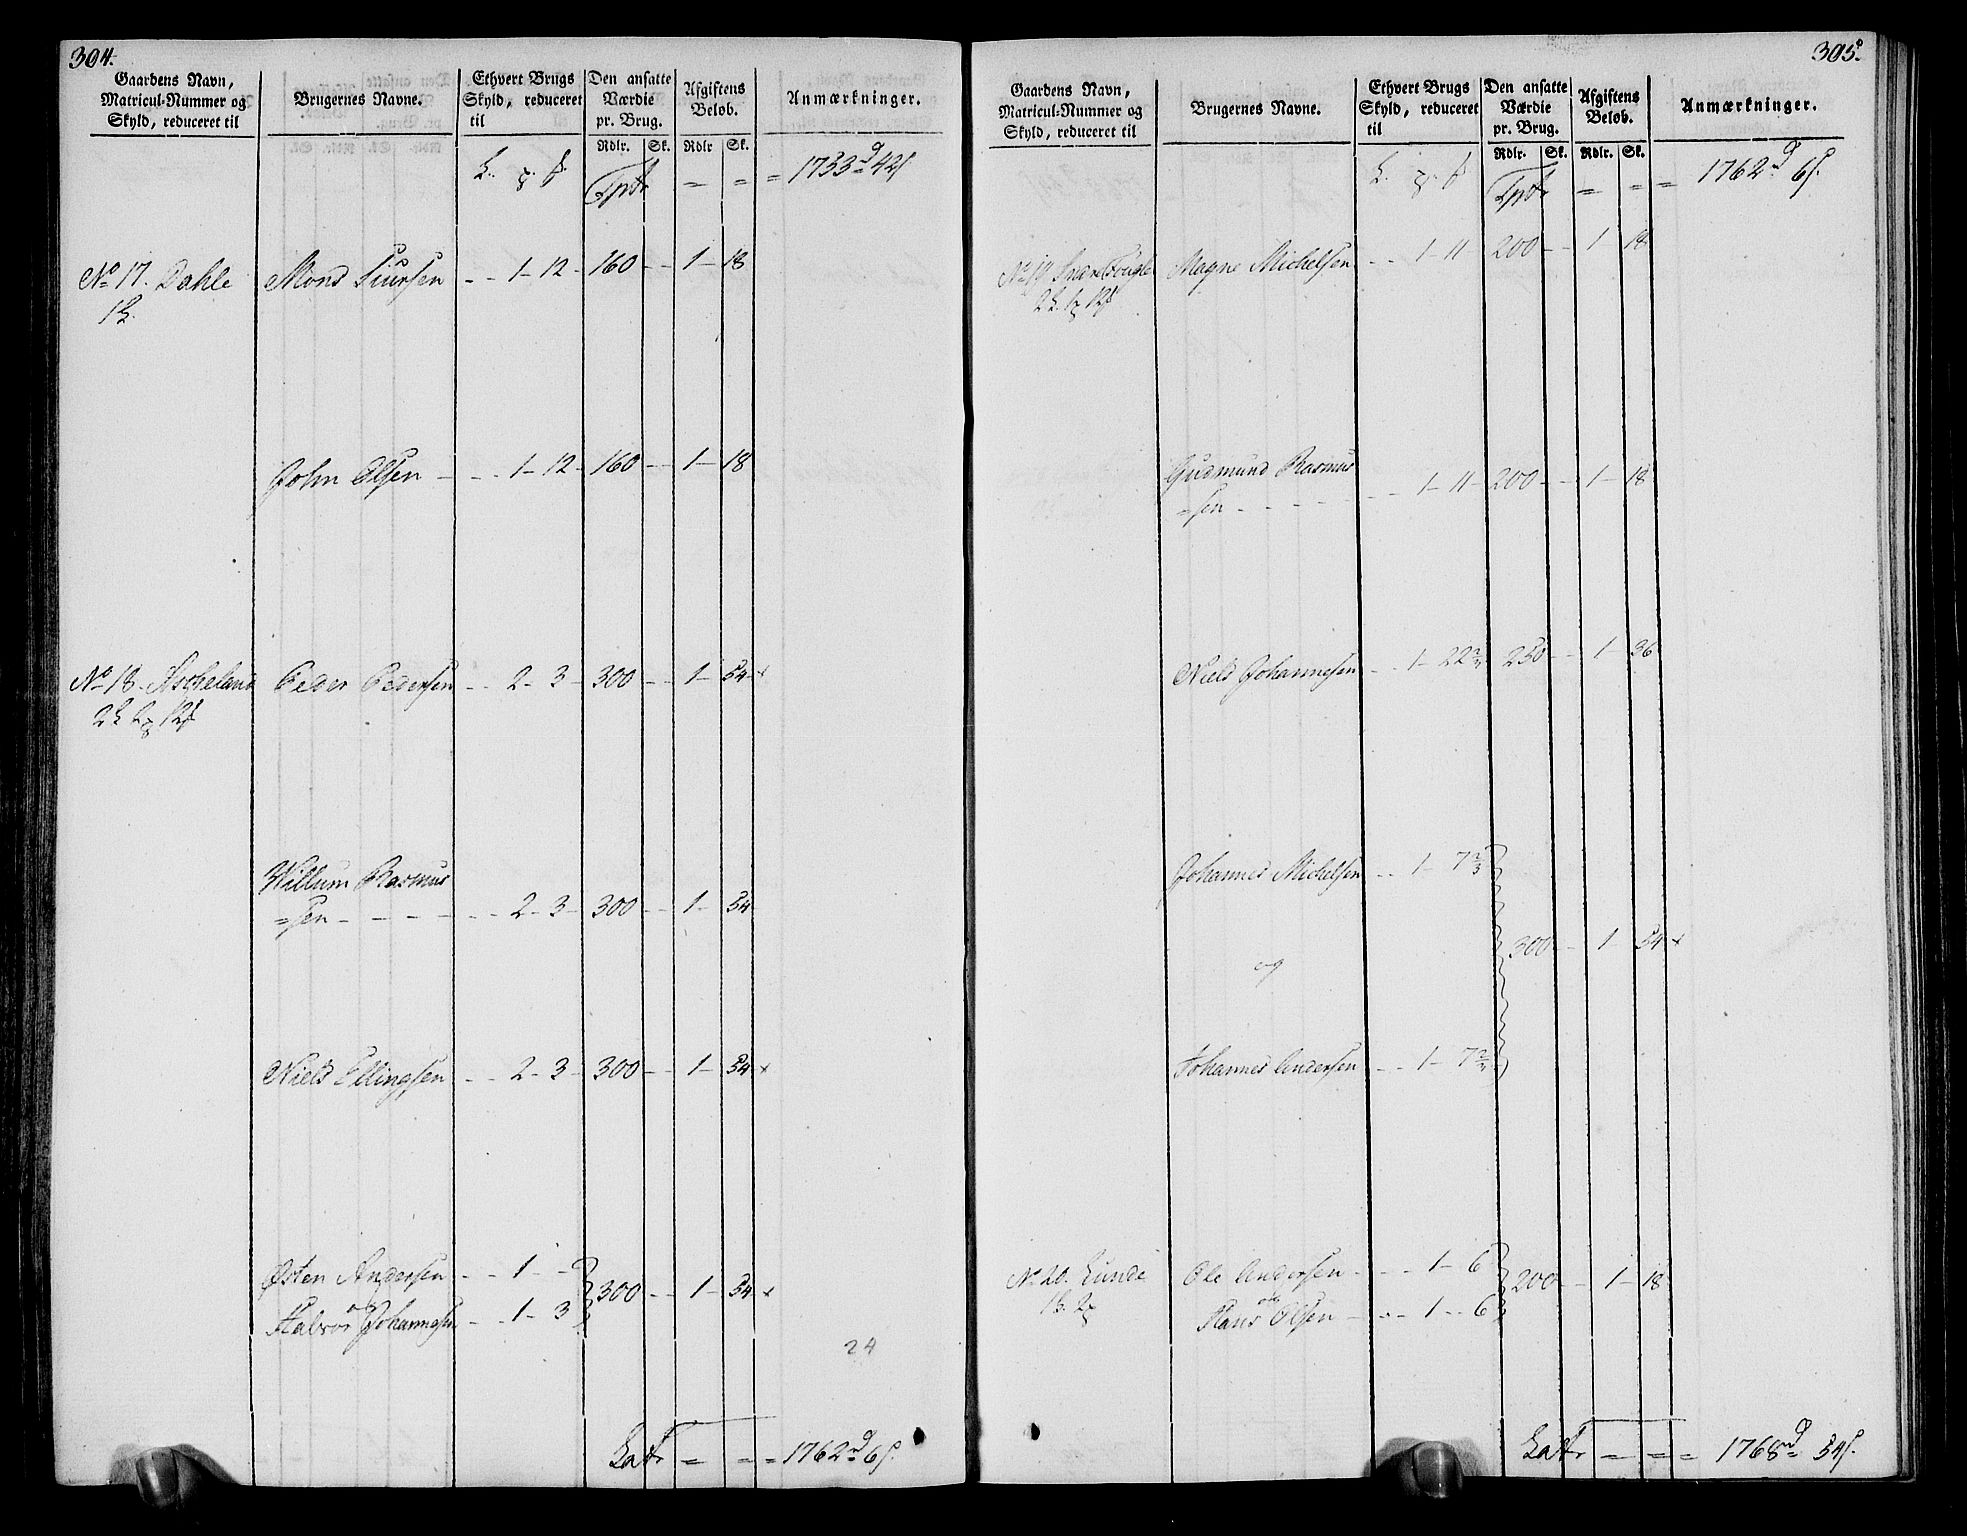 304.
Gaardens Navn, Matricul-Nummer og Skyld, reduceret til
Brugernes Navne.
Ethvert Brugs Skyld, reduceret til
Den ansatte Værdie pr. Brug.
Afgiftens Beløb.
Anmærkninger.
Rdlr. Sk. Rdlr Sk.
Tprt = = = 1733 d 42 s
No 17. Dahle Mons Siursen - - 1 - 12 - 160 - - 1 - 18
John Olsen - - - 1 - 12 - 160 - - 1 - 18
No 18. Ascheland Peder Pedersen - - 2 - 3 - 300 - - 1 - 54 x
Willum Rasmus
=sen - - - - - 2 - 3 - 300 - - 1 - 54
Niels Ellingsen - - 2 - 3 - 300 - - 1 - 54 x
Østen Andersen - - 1 - -
og 300 - - 1 - 54 x
Halvor Johannesen - - 1 - 3
24
Latr = = = 1762 d 6 s.
305.
Gaardens Navn, Matricul-Nummer og Skyld, reduceret til
Brugernes Navne.
Ethvert Brugs Skyld, reduceret til
Den ansatte Værdie pr. Brug.
Afgiftens Beløb.
Anmærkninger.
Rdlr. Sk. Rdlr. Sk.
Tprt = = = 1762 d 6 s.
No 19 Magne Michelsen - - 1 - 11 200 - - 1 - 18
Gudmund Rasmus
=sen - - - - - - 1 - 11 - 200 - - 1 - 18
Niels Johannesen - - 1 - 22 2/3 250 - - 1 - 36
Johannes Michelsen - - 1 - 7 2/3
og 300 - - 1 - 54 x
Johannes Andersen - - 1 - 7 2/3
No 20. Lunde Ole Andersen - - - 1 - 6
og 200 - - 1 - 18
Hans Olsen - - - 1 - - 6
Latr = = = 1768 d 54 s.